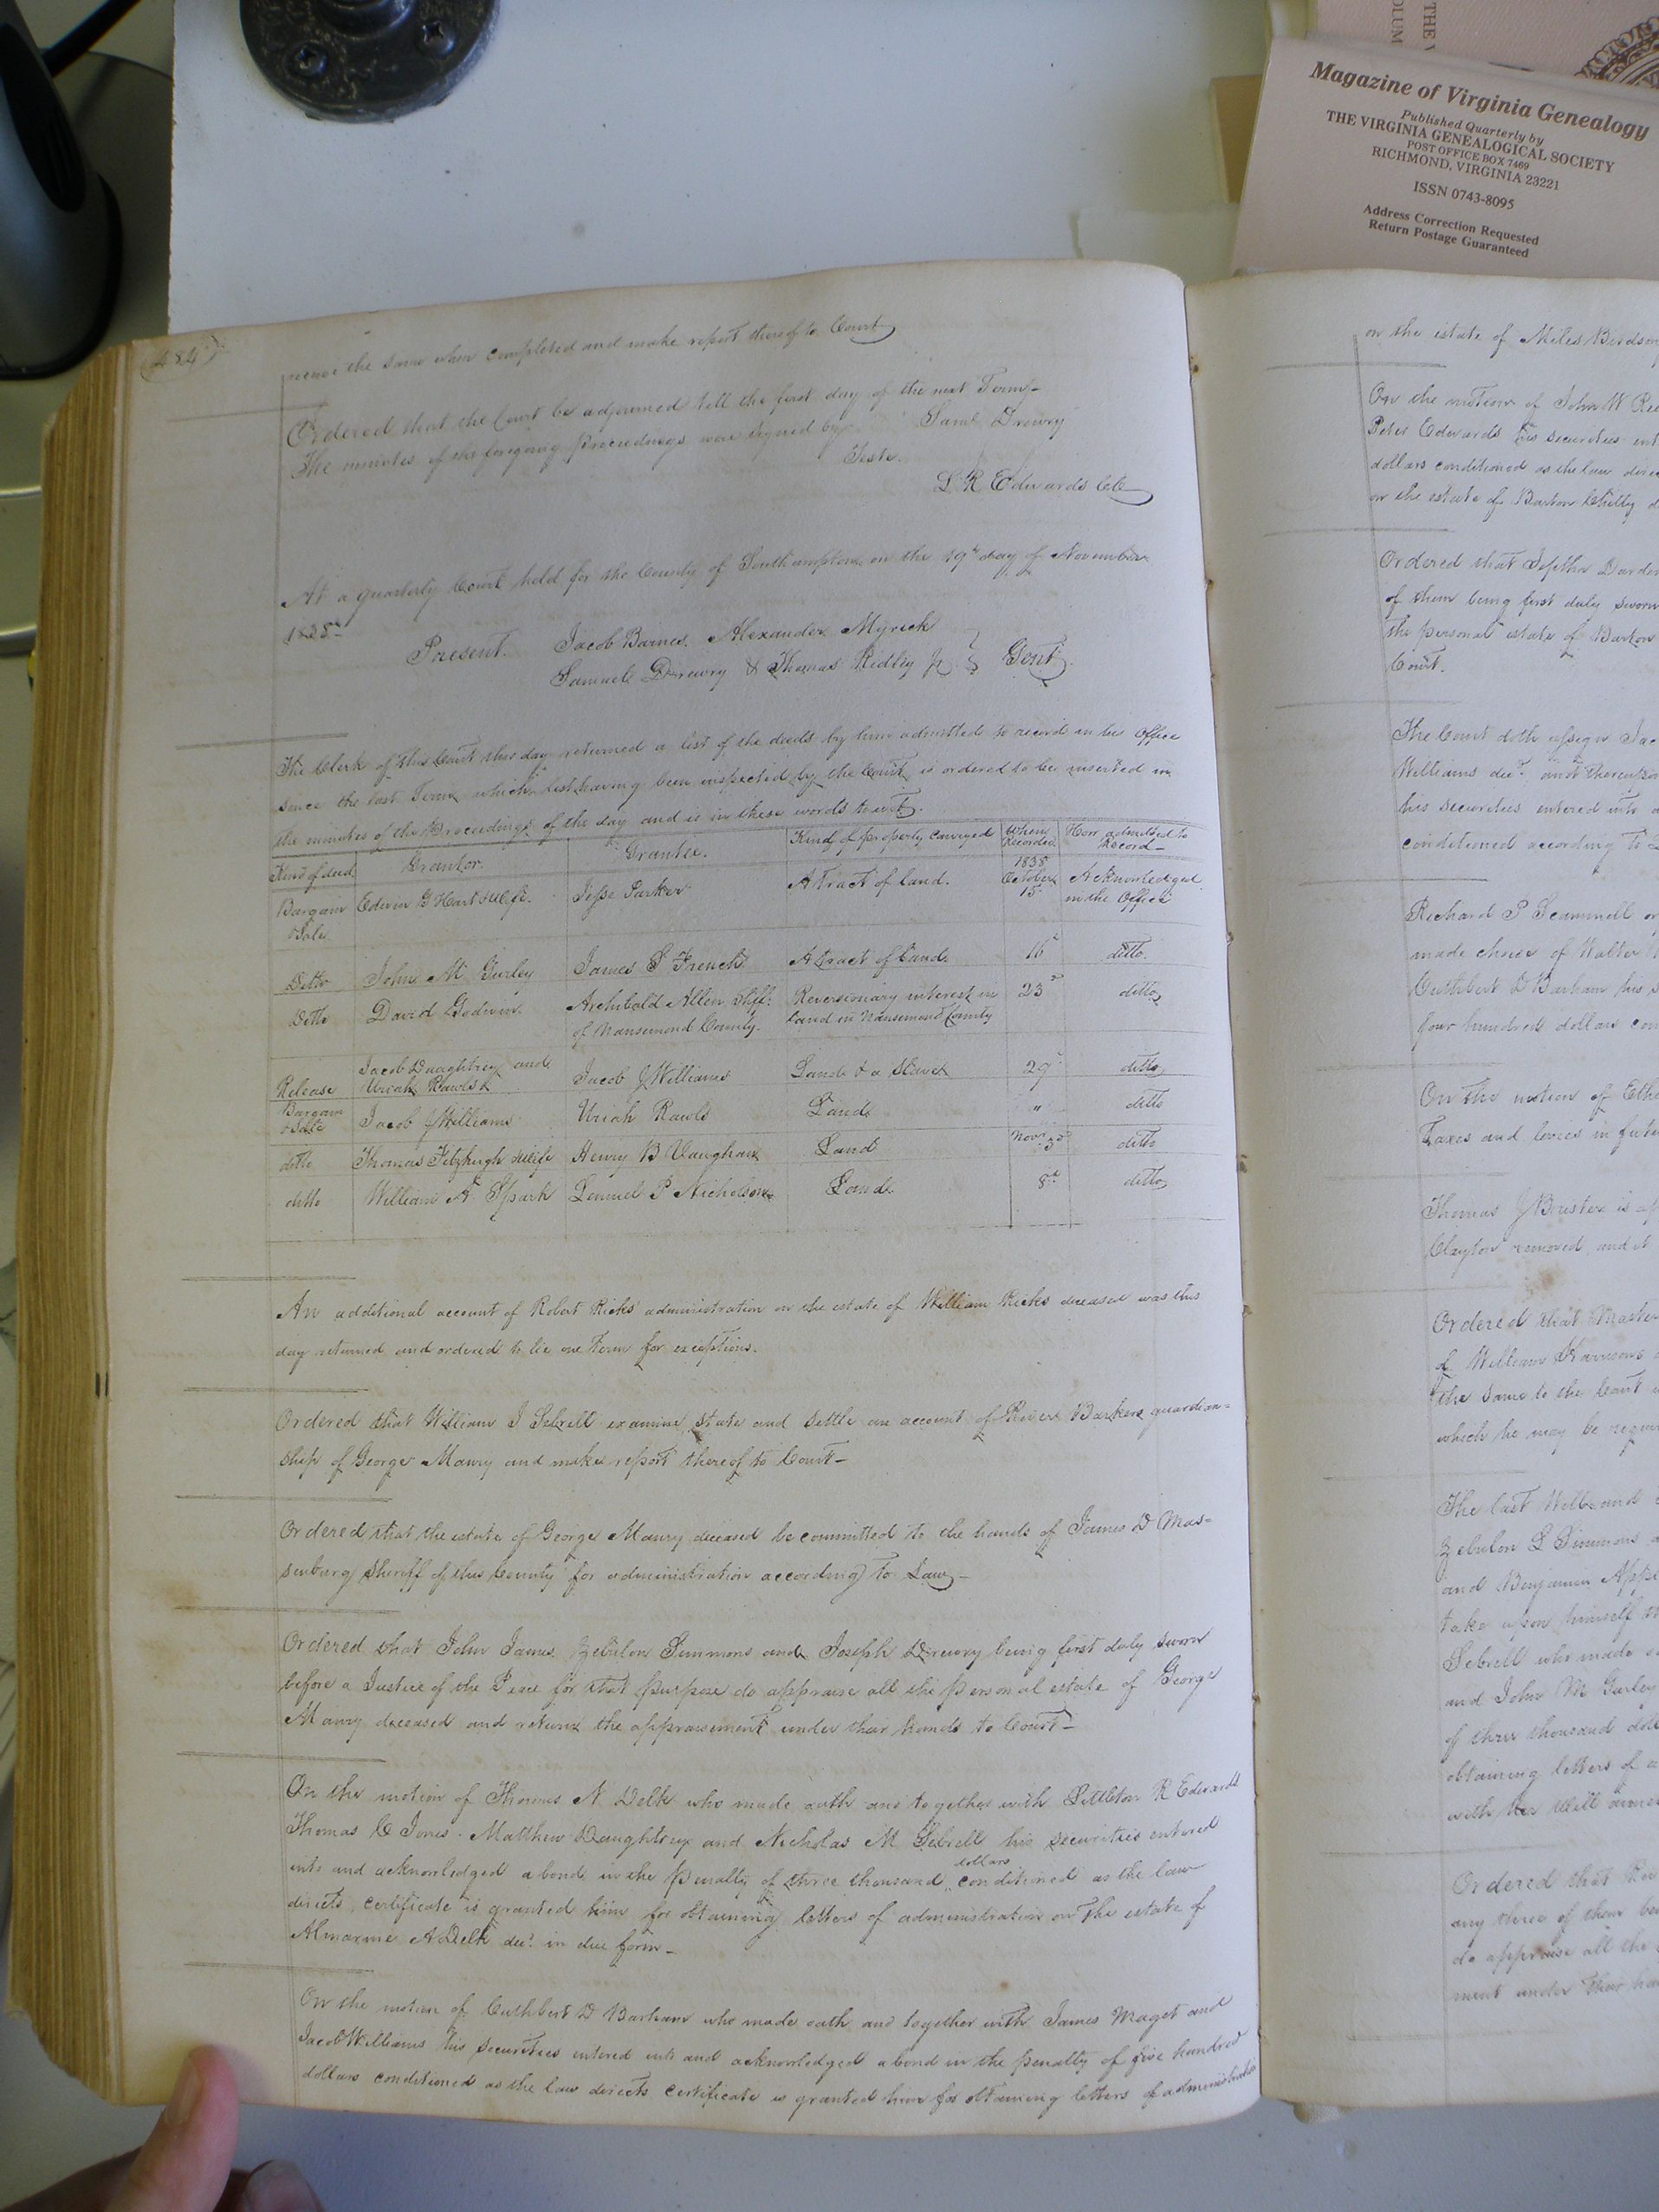 THE V
OLUM
Magazine of Virginia Genealogy
Published Quarterly by
THE VIRGINIA GENEALOGICAL SOCIETY
POST OFFICE BOX 7469
RICHMOND, VIRGINIA 23221
ISSN 0743-8095
Address Correction Requested
Return Postage Guaranteed
484
the same when completed and make report thereof to Court
Ordered that the Court be adjourned till the first day of the next Term
The minutes of the foregoing proceedings were signed by Saml Drewry
Teste.
L R Edwards Clk
At a quarterly Court held for the County of Southampton on the 19th day of November
1838
Present. Jacob Barnes, Alexander Myrick
Samuel Drewry & Thomas Ridley Jr } Gent.
The Clerk of this Court this day returned a list of the deeds by him admitted to record in his office
since the last Term which list having been inspected by the Court is ordered to be inserted in
the minutes of the Proceedings of the day and is in these words to wit.
Kind of deed Grantor. Grantee. Kind of property conveyed When Recorded How admitted to Record
Bargain & Sale Edwin G Hart & Wife. Jesse Parker A Tract of land. 1838 October 15 Acknowledged in the Office
Ditto John M Gurley James S French A tract of Land 16 ditto.
Ditto David Godwin. Archibald Allen Shff: of Nansemond County. Reversionary interest in land in Nansemond County 23 ditto
Release Jacob Daughtrey and Uriah Rawls Jacob J Williams Land & a Slave 29 ditto
Bargain & Sale Jacob J Williams Uriah Rawls Land " ditto
ditto Thomas Fitzhugh & Wife Henry B Vaughan Land Novr 3d ditto
ditto William A Spark Lemuel P Nicholson Land 8th ditto
An additional account of Robert Ricks' administration on the estate of William Ricks deceased was this
day returned and ordered to lie one term for exceptions.
Ordered that William J Sebrell examine, state and settle an account of Barkers guardian=
ship of George Maury and make report thereof to Court
Ordered that the estate of George Maury deceased be committed to the hands of James D Mas=
senburg Sheriff of this County for administration according to Law
Ordered that John James, Zebulon Simmons and Joseph Drewry being first duly sworn
before a Justice of the Peace for that purpose do appraise all the personal estate of George
Maury deceased and return the appraisement under their hands to Court
On the motion of Thomas N Delk who made oath and together with Littleton R Edwards
Thomas C Jones. Matthew Daughtrey and Nicholas M Sebrell his securities entered
into and acknowledged a bond in the penalty of three thousand dollars conditioned as the law
directs, certificate is granted him for obtaining letters of administration on the estate of
A Delk decd. in due form
On the motion of Cuthbert D Barham who made oath and together with James Maget and
Jacob Williams his securities entered into and acknowledged a bond in the penalty of five hundred
dollars conditioned as the law directs certificate is granted him for obtaining letters of administration
on the estate of Miles Birdson
On the motion of John W
Peter Edwards his securities ent
dollars conditioned as the law dire
on the estate of Barton
Ordered that Jeptha Darden
of them being first duly sworn
the personal estate of Barton
Court.
The Court doth assign Jac
Williams decd. and thereupon
his securities entered into a
conditioned according to L
Richard P Scammell or
made choice of Walter
Cuthbert D Barham his s
four hundred dollars con
On the motion of Eth
Taxes and levies in futu
Thomas J is ap
Clayton removed, and it
Ordered that Master
of William Harrison
the same to the Court
which he may be requi
The last Will and
Zebulon L Simmons
and Benjamin
take upon himself th
Sebrell who made o
and John M Gurley
of three thousand doll
obtaining letters of a
with her Will annex
Ordered that
any three of them be
do appraise all the
ment under their ha